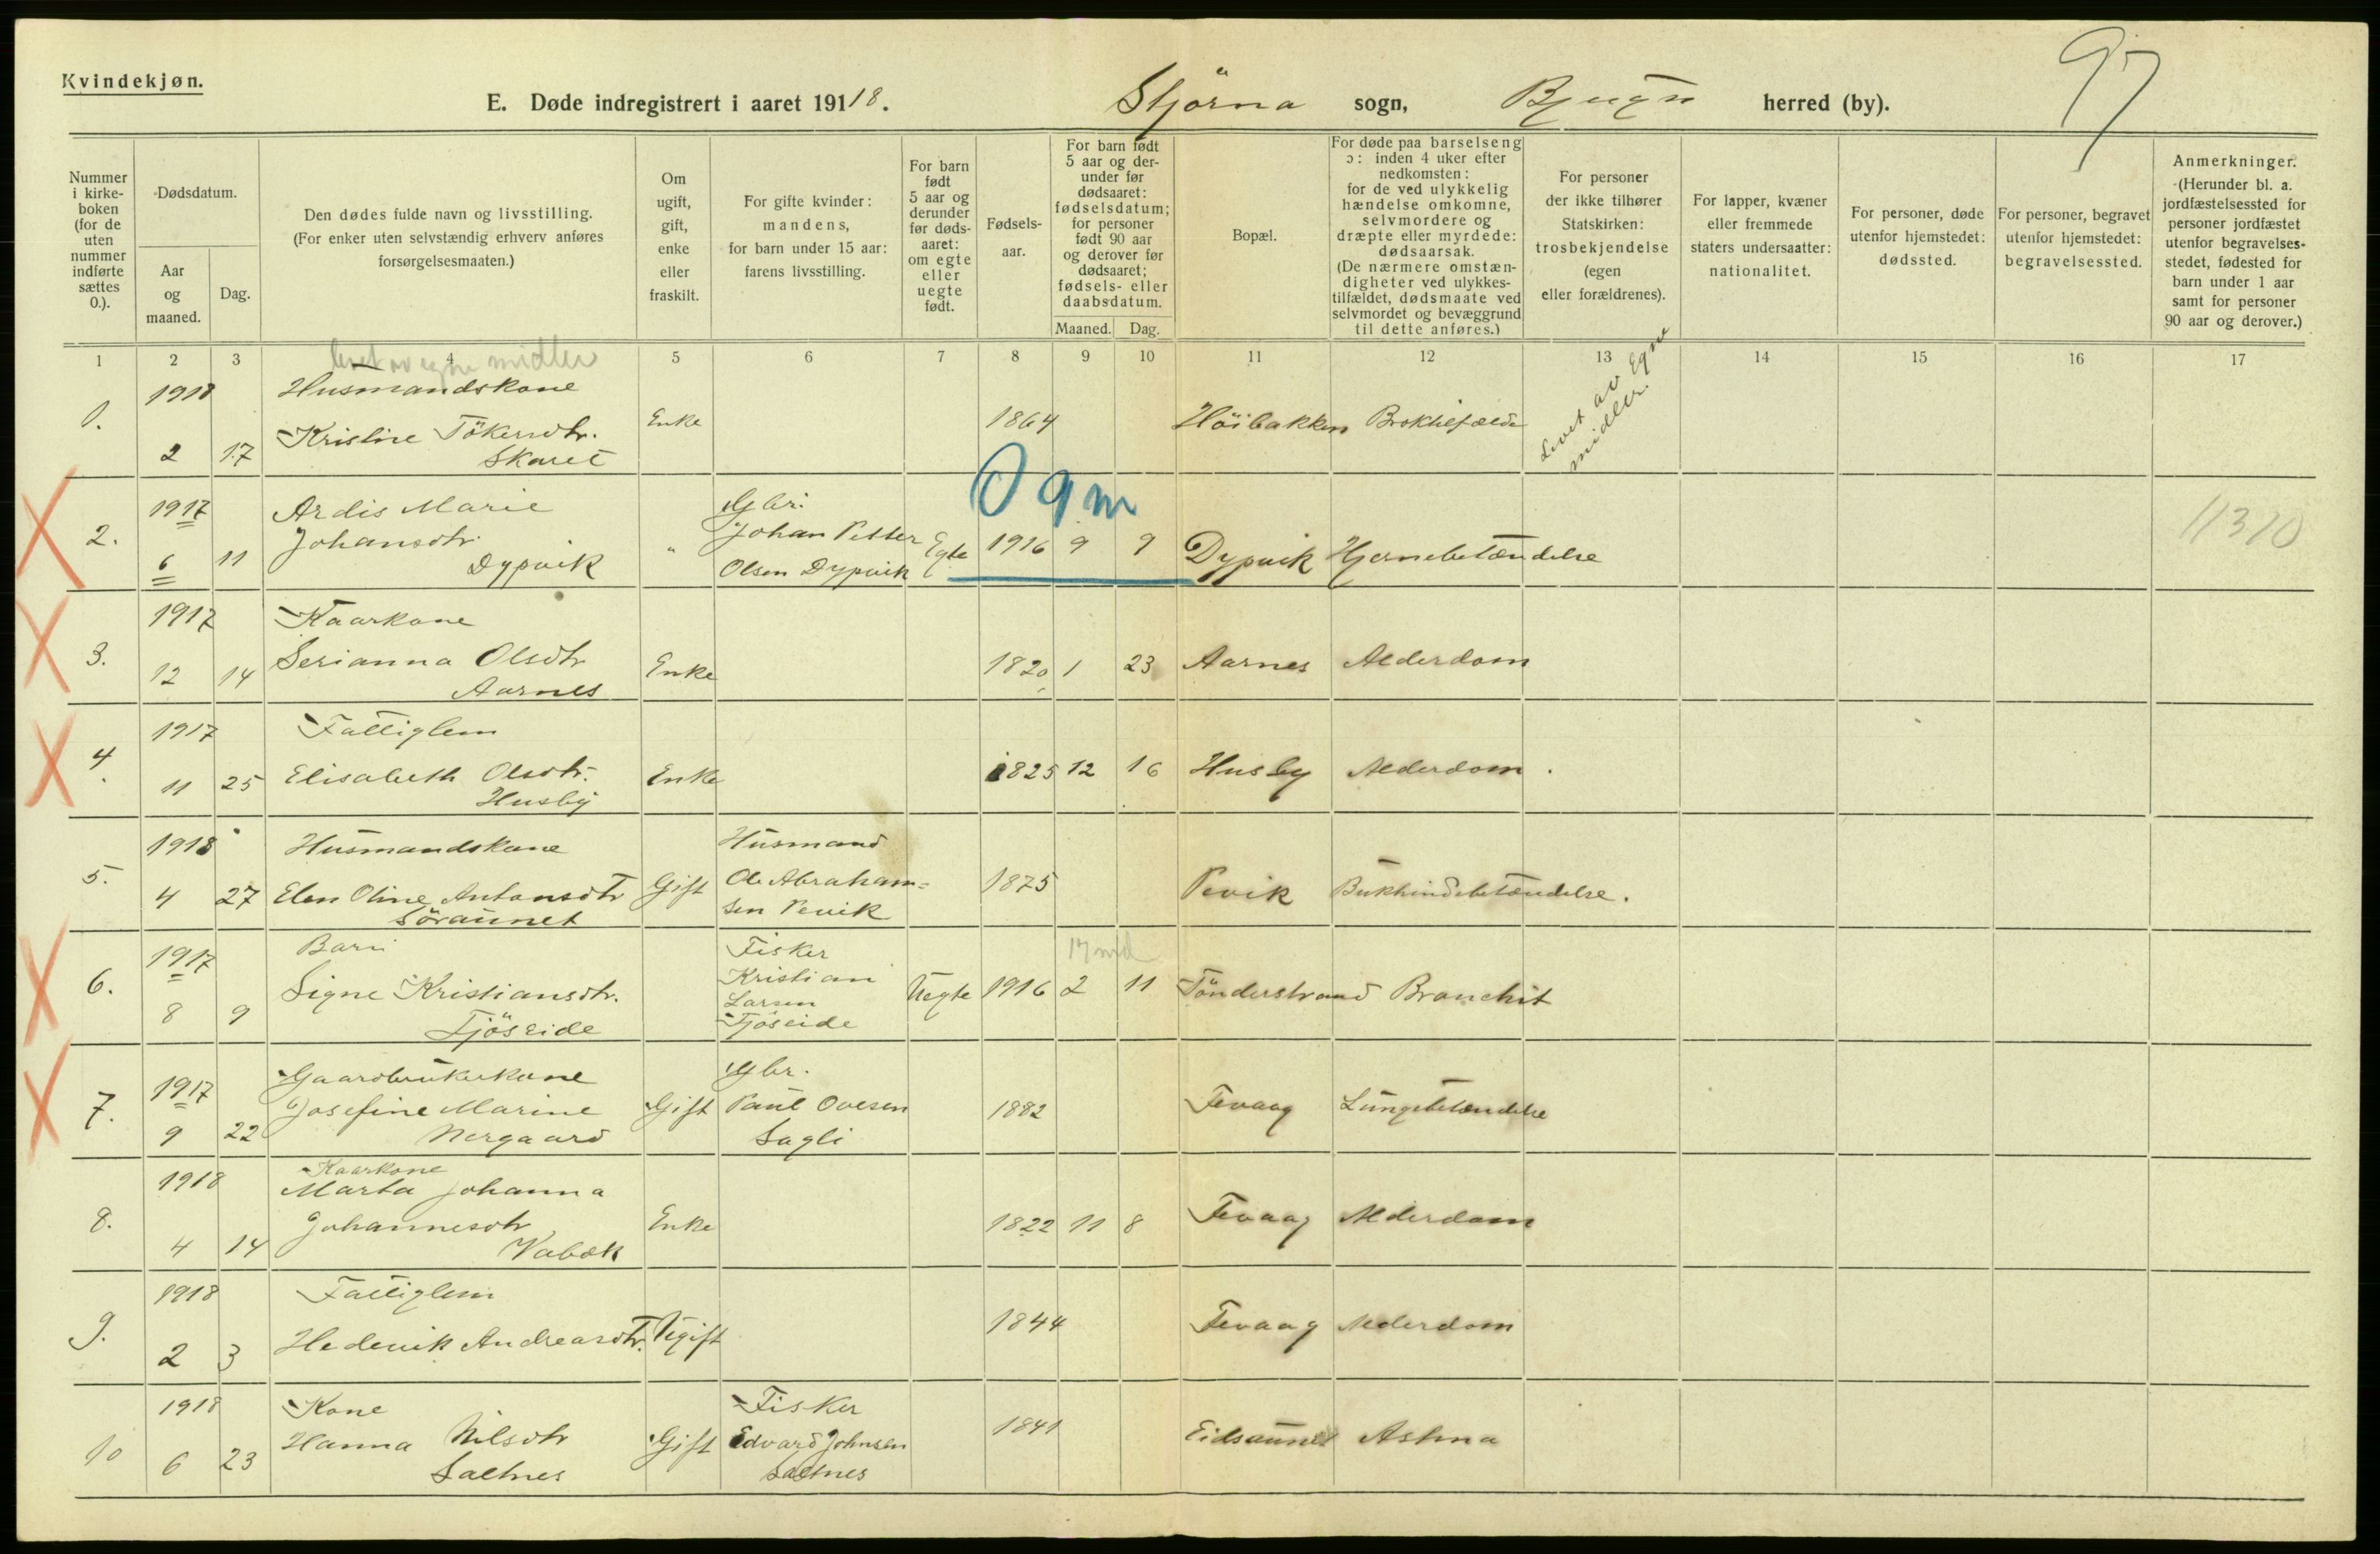 97
Kvindekjøn.
E. Døde indregistrert i aaret 19118. Stjörna sogn, Bjugn herred (by).
Nummer i kirke-boken (for de uten nummer indførte sættes 0.).
Dødsdatum.
Aar og maaned.
Dag.
Den dødes fulde navn og livsstilling. (For enker uten selvstændig erhverv anføres forsørgelsesmaaten.)
Om ugift, gift, enke eller fraskilt.
For gifte kvinder: mandens, for barn under 15 aar: farens livsstilling.
For barn født 5 aar og derunder før døds-aaret: om egte eller uegte født.
Fødsels-aar.
For barn født 5 aar og der-under før dødsaaret: fødselsdatum; for personer født 90 aar og derover før dødsaaret; fødsels- eller daabsdatum.
Maaned. Dag.
Bopæl.
For døde paa barselseng ɔ: inden 4 uker efter nedkomsten: for de ved ulykkelig hændelse omkomne, selvmordere og dræpte eller myrdede: dødsaarsak. (De nærmere omstæn-digheter ved ulykkes-tilfældet, dødsmaate ved selvmordet og bevæggrund til dette anføres.)
For personer der ikke tilhører Statskirken: trosbekjendelse (egen eller forældrenes).
For lapper, kvæner eller fremmede staters undersaatter: nationalitet.
For personer, døde utenfor hjemstedet: dødssted.
For personer, begravet utenfor hjemstedet: begravelsessted.
Anmerkninger. (Herunder bl. a. jordfæstelsessted for personer jordfæstet utenfor begravelses-stedet, fødested for barn under 1 aar samt for personer 90 aar og derover.)
1 2 3 4 5 6 7 8 9 10 11 12 13 14 15 16 17
levet av egne midler
1918 Husmandskone
1. Kristine Tökersdtr. Enke 1864 Höibakken Brokhilfælde Levet av Egne midler.
2 17 Skaret
0 9 m
1917 Ardis Marie Gbr.
2. Johansdtr. " Johan Petter Egte 1916 9 9 Dypvik Hjernebetændelse 11310
6 11 Dypvik Olsen Dypvik
1917 Kaarkone
3. Serianna Olsdtr Enke 1820 1 23 Aarnes Alderdom
12 14 Aarnes
1917 Fattiglem
4. 11 25 Elisabeth Olsdtr. Enke 1825 12 16 Husby Alderdom.
Husby
1918 Husmandskone Husmand
5. 4 27 Elen Oline Antonsdtr Gift Ole Abraham= 1875 Pevik Bukhindebetændelse.
Söraunet sen Pevik
1917 Barn Fisker 17 md
6. Signe Kristiansdtr. Kristian Uegte 1916 2 11 Tönderstrand Bronchit
8 9 Larsen
Fjöseide Fjöseide
1917 Gaardbrukerkone Gbr.
7. Josefine Marine Gift Paul Ovesen 1882 Fevaag Lungebetændelse
9 22 Norgaard Sagli
Kaarkone
1918 Marta Johanna
8. Johannesdtr Enke 1822 11 8 Fevaag Alderdom
4 14 Vabæk
1918 Fattiglem
9. 2 3 Hedevik Andreasdtr. Ugift 1844 Fevaag Alderdom
1918 Kone Fisker
10 6 23 Hanna Nilsdtr Gift Edvard Johnsen 1841 Eidsaunet Astma
Saltnes Saltnes